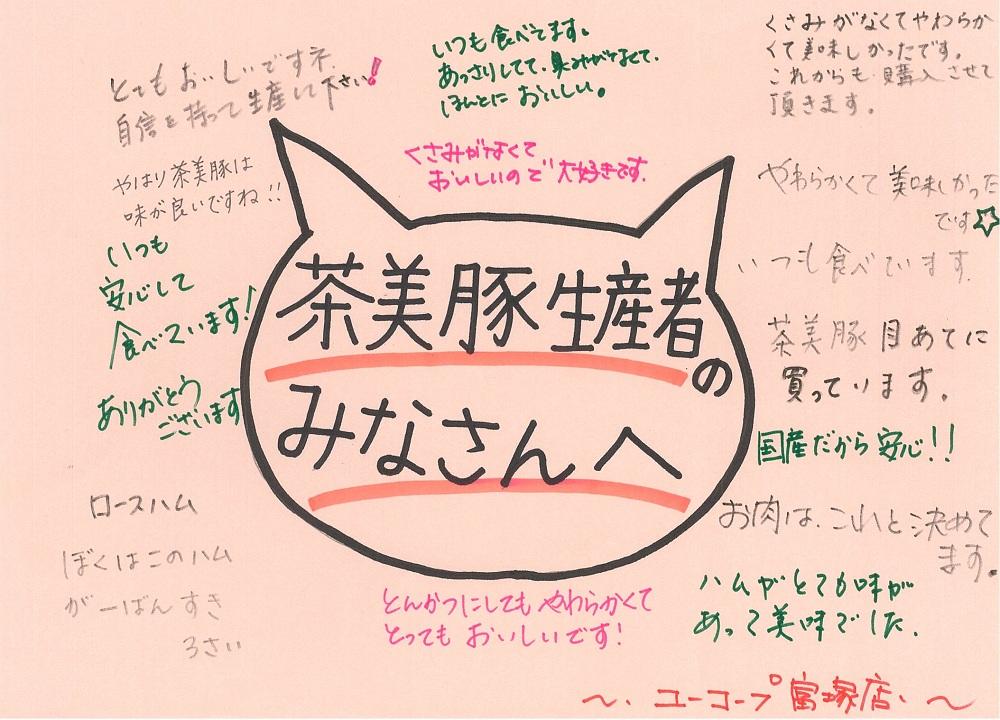 とてもおいしいですネ.
自信を持って生産して下さい!
やはり茶美豚は
味が良いですね!!
いつも
安心して
食べています!
ありがとう
ございます
ロースハム
ぼくはこのハム
が一ばんすき
3さい
いつも食べてます。
あっさりしてて、臭みがなくて、
ほんとにおいしい。
くさみがなくて
おいしいので大好きです.
茶美豚生産者の
みなさんへ
とんかつにしてもやわらかくて
とってもおいしいです!
くさみがなくてやわらか
くて美味しかったです。
これからも購入させて
頂きます。
やわらかくて美味しかった
です☆
いつも食べています.
茶美豚目あてに
買っています。
国産だから安心!!
お肉は、これと決めて
ます。
ハムがとても味が
あって美味でした.
〜.ユーコープ富塚店.〜